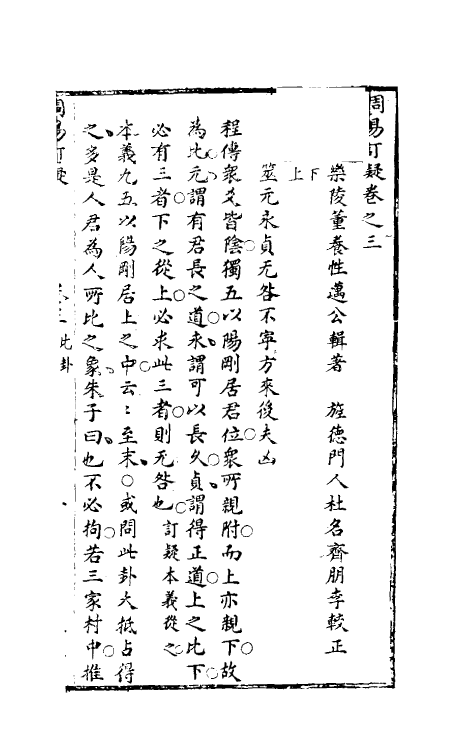 周易訂疑卷之三
樂陵董養性邁公輯著　旌德門人杜名齊朋李較正
下
上
筮元永貞无咎不寧方來後夫凶
程傳衆爻皆陰獨五以陽剛居君位衆所親附而上亦親下故
為比元謂有君長之道永謂可以長久貞謂得正道上之比下
必有三者下之從上必求此三者則无咎也　訂疑本義從之
本義九五以陽剛居上之中云〻至末○或問此卦大抵占得
之多是人君為人所比之象朱子曰也不必拘若三家村中推
周易訂疑　卷三　比卦